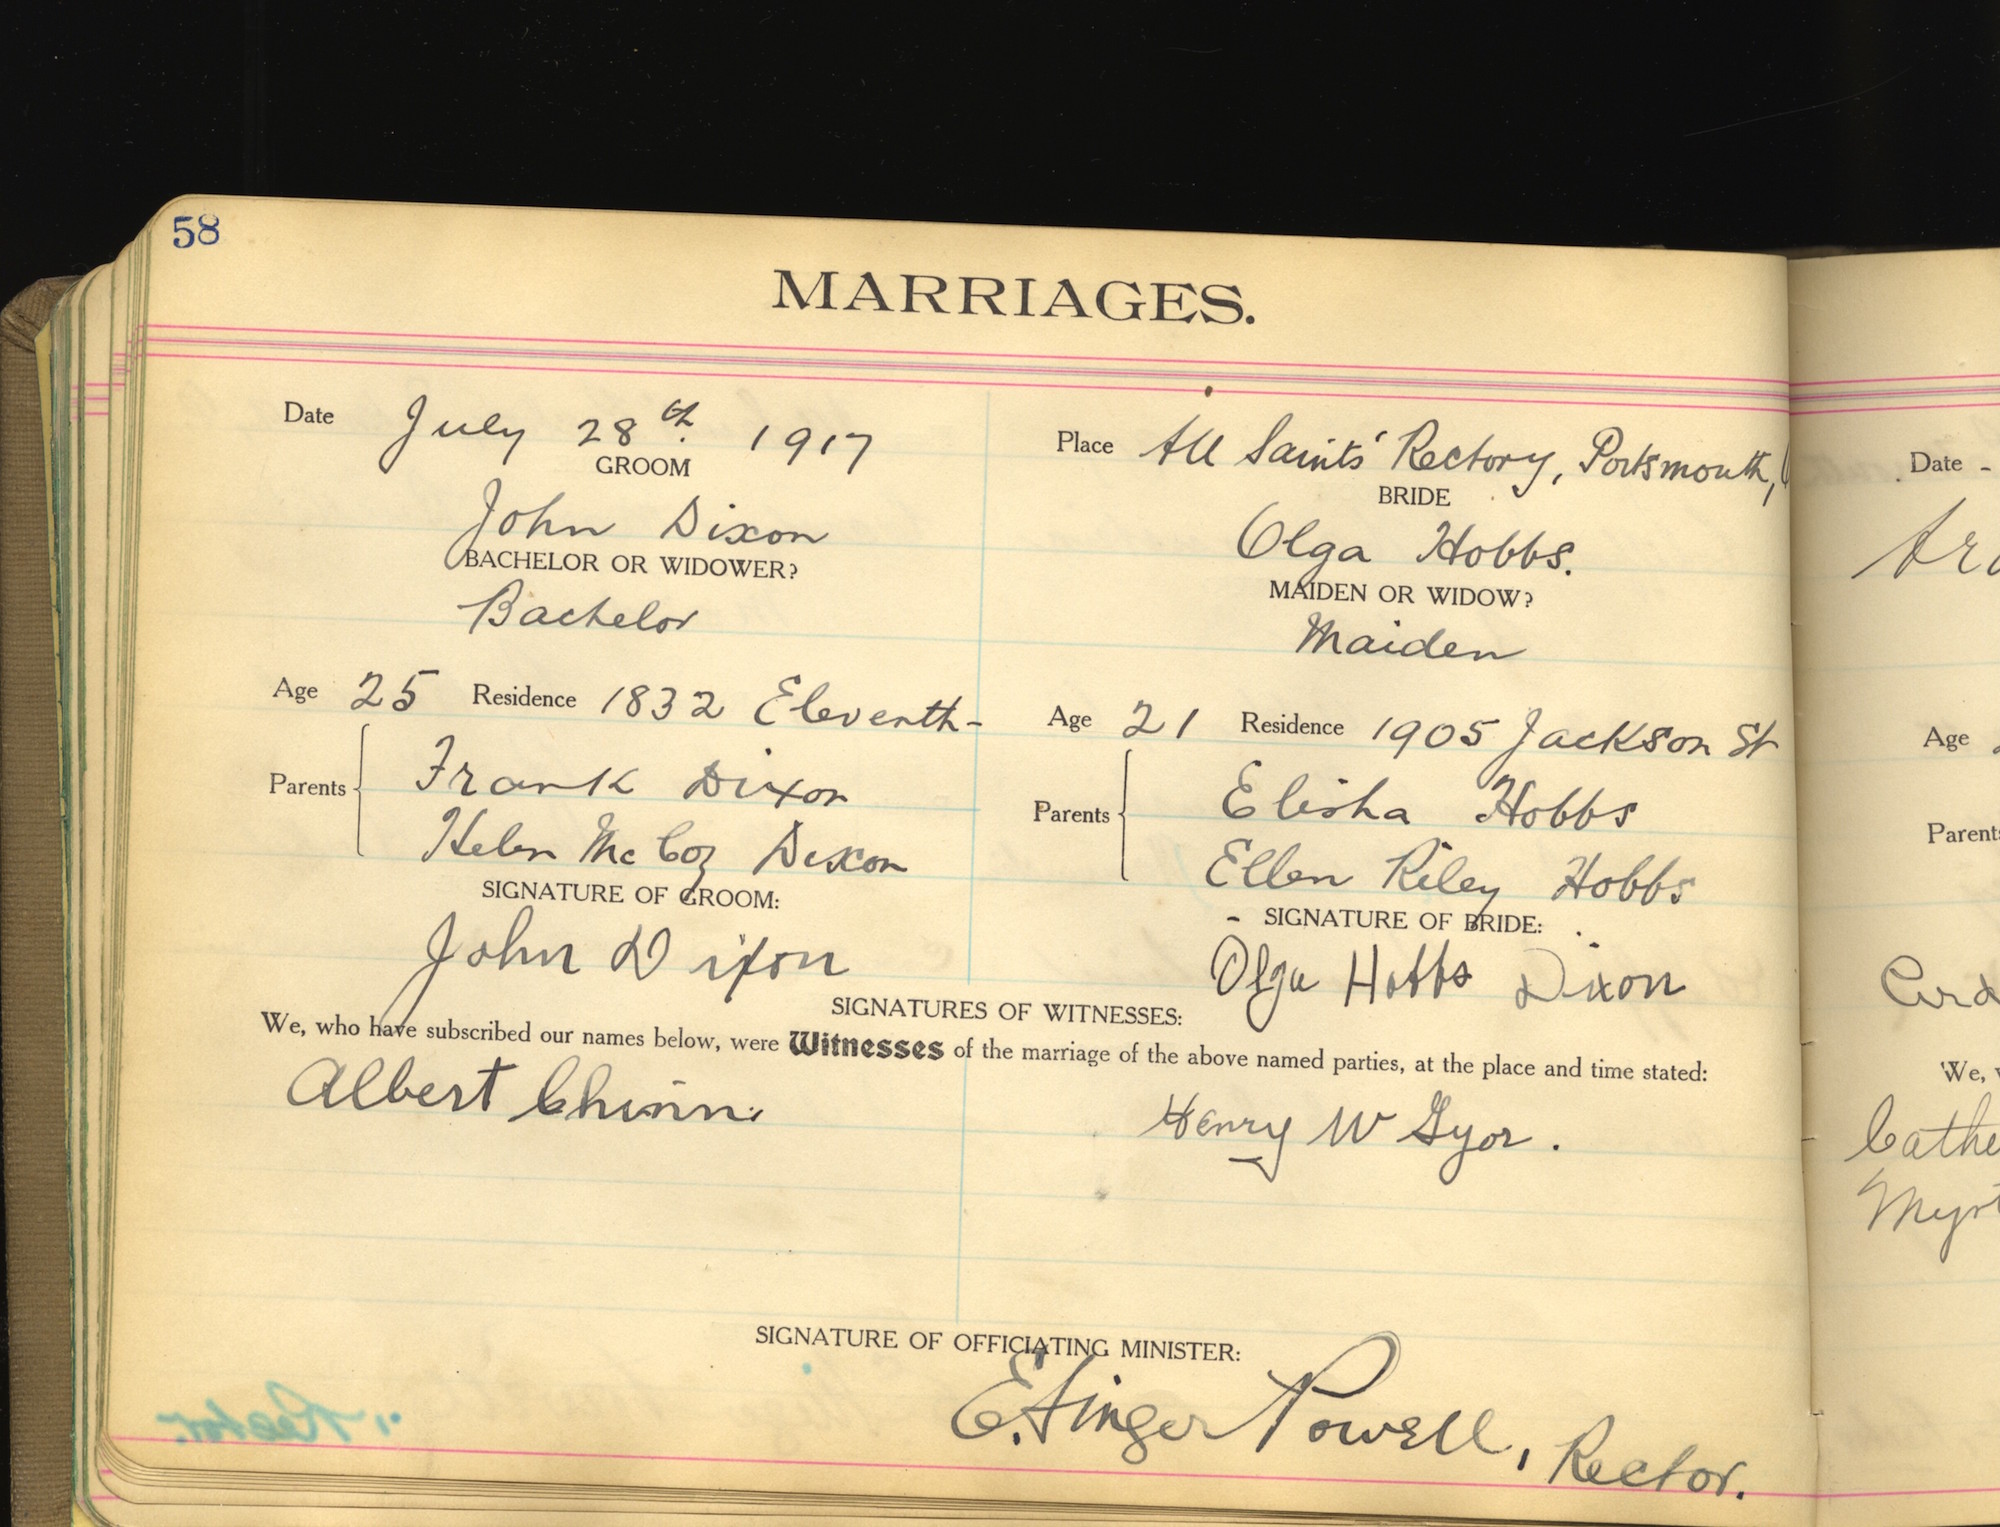 58
MARRIAGES.
Date July 28th. 1917
Place All Saints' Rectory, Portsmouth,
GROOM
BRIDE
John Dixon
Olga Hobbs.
BACHELOR OR WIDOWER?
MAIDEN OR WIDOW?
Bachelor
Maiden
Age 25 Residence 1832 Eleventh-
Age 21 Residence 1905 Jackson St
Parents
Frank Dixon
Helen McCoy Dixon
Parents
Elisha Hobbs
Ellen Riley Hobbs
SIGNATURE OF GROOM:
SIGNATURE OF BRIDE:
John Dixon
Olga Hobbs Dixon
SIGNATURES OF WITNESSES:
We, who have subscribed our names below, were Witnesses of the marriage of the above named parties, at the place and time stated:
Albert Chinn
Henry W
SIGNATURE OF OFFICIATING MINISTER:
E. Ainger Powell, Rector.
Date
Age
Parents
We,